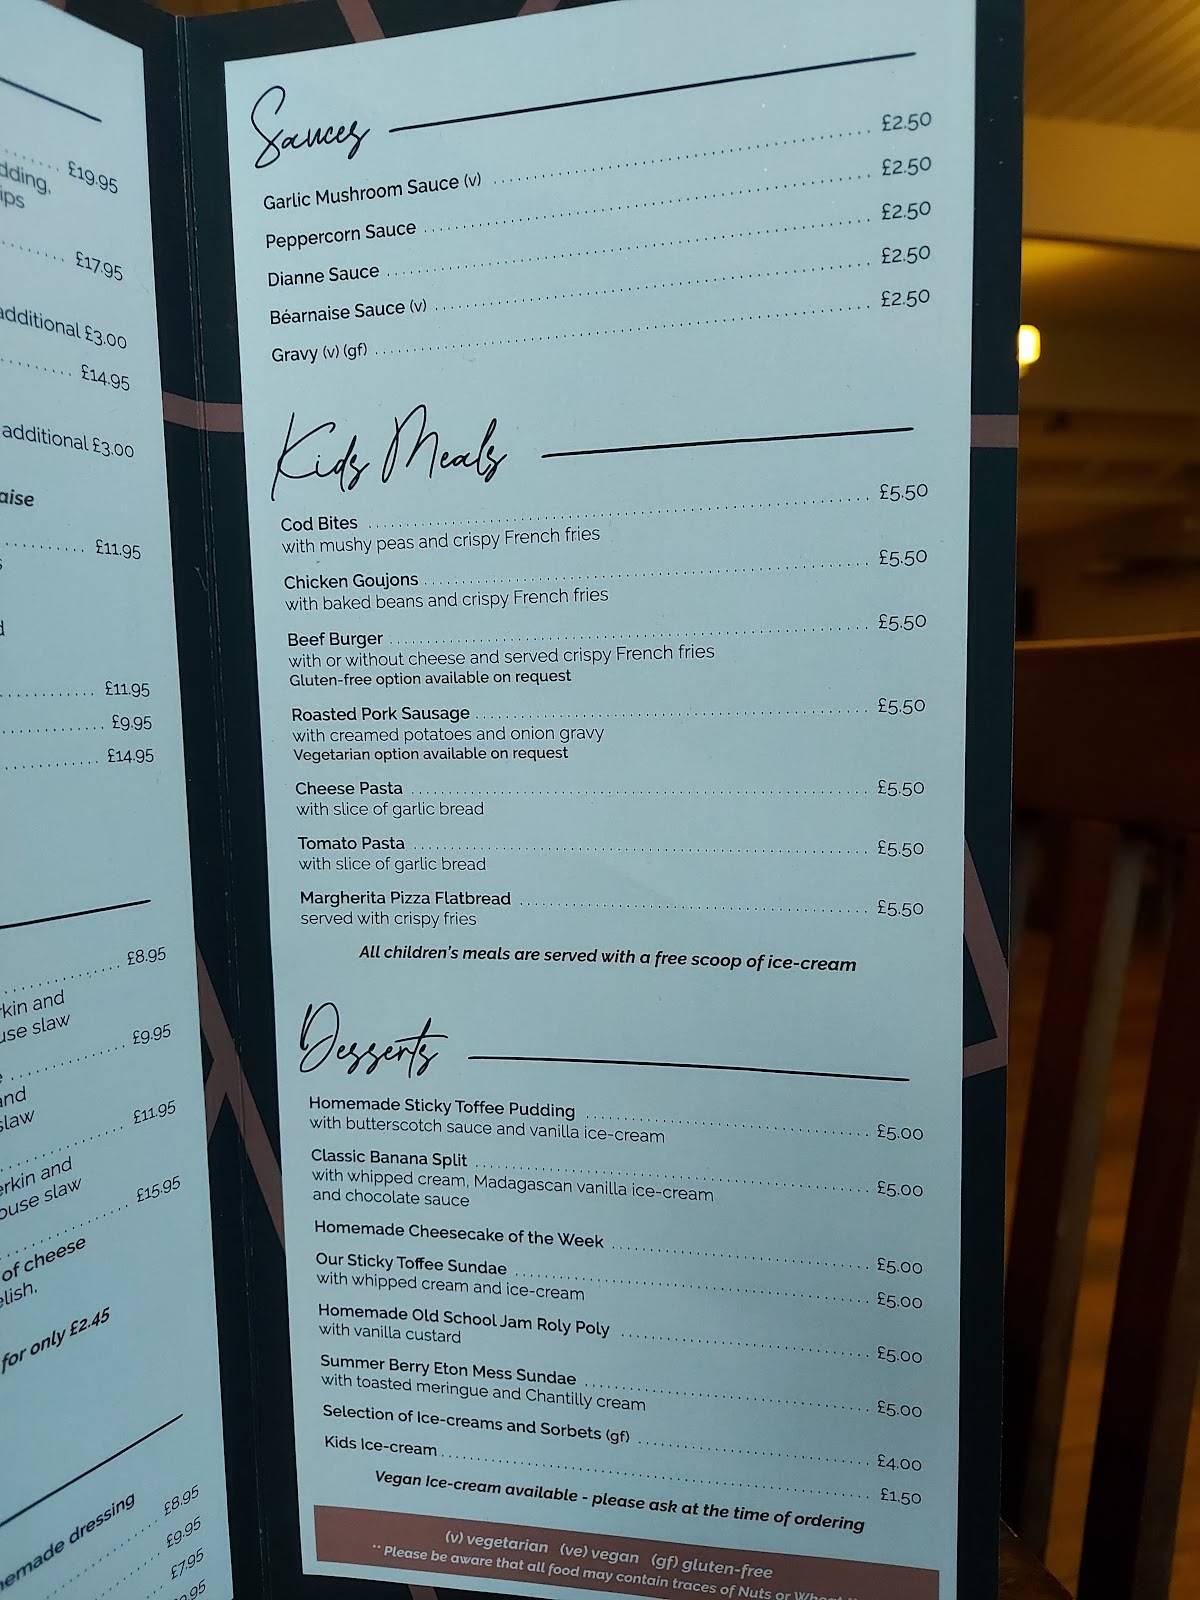 £19.95
dding,
ips
£17.95
additional £3.00
£14.95
additional £3.00
aise
£11.95
£11.95
£9.95
£14.95
£8.95
rkin and
use slaw
£9.95
and
slaw
£11.95
erkin and
ouse slaw
£15.95
of cheese
elish,
for only £2.45
emade dressing
£8.95
£9.95
£7.95
Sauces
Garlic Mushroom Sauce (v) £2.50
Peppercorn Sauce £2.50
Dianne Sauce £2.50
Béarnaise Sauce (v) £2.50
Gravy (v) (gf) £2.50
Kids Meals
Cod Bites £5.50
with mushy peas and crispy French fries
Chicken Goujons £5.50
with baked beans and crispy French fries
Beef Burger £5.50
with or without cheese and served crispy French fries
Gluten-free option available on request
Roasted Pork Sausage £5.50
with creamed potatoes and onion gravy
Vegetarian option available on request
Cheese Pasta £5.50
with slice of garlic bread
Tomato Pasta £5.50
with slice of garlic bread
Margherita Pizza Flatbread £5.50
served with crispy fries
All children's meals are served with a free scoop of ice-cream
Desserts
Homemade Sticky Toffee Pudding £5.00
with butterscotch sauce and vanilla ice-cream
Classic Banana Split £5.00
with whipped cream, Madagascan vanilla ice-cream
and chocolate sauce
Homemade Cheesecake of the Week £5.00
Our Sticky Toffee Sundae £5.00
with whipped cream and ice-cream
Homemade Old School Jam Roly Poly £5.00
with vanilla custard
Summer Berry Eton Mess Sundae £5.00
with toasted meringue and Chantilly cream
Selection of Ice-creams and Sorbets (gf) £4.00
Kids Ice-cream £1.50
Vegan Ice-cream available - please ask at the time of ordering
(v) vegetarian (ve) vegan (gf) gluten-free
** Please be aware that all food may contain traces of Nuts or